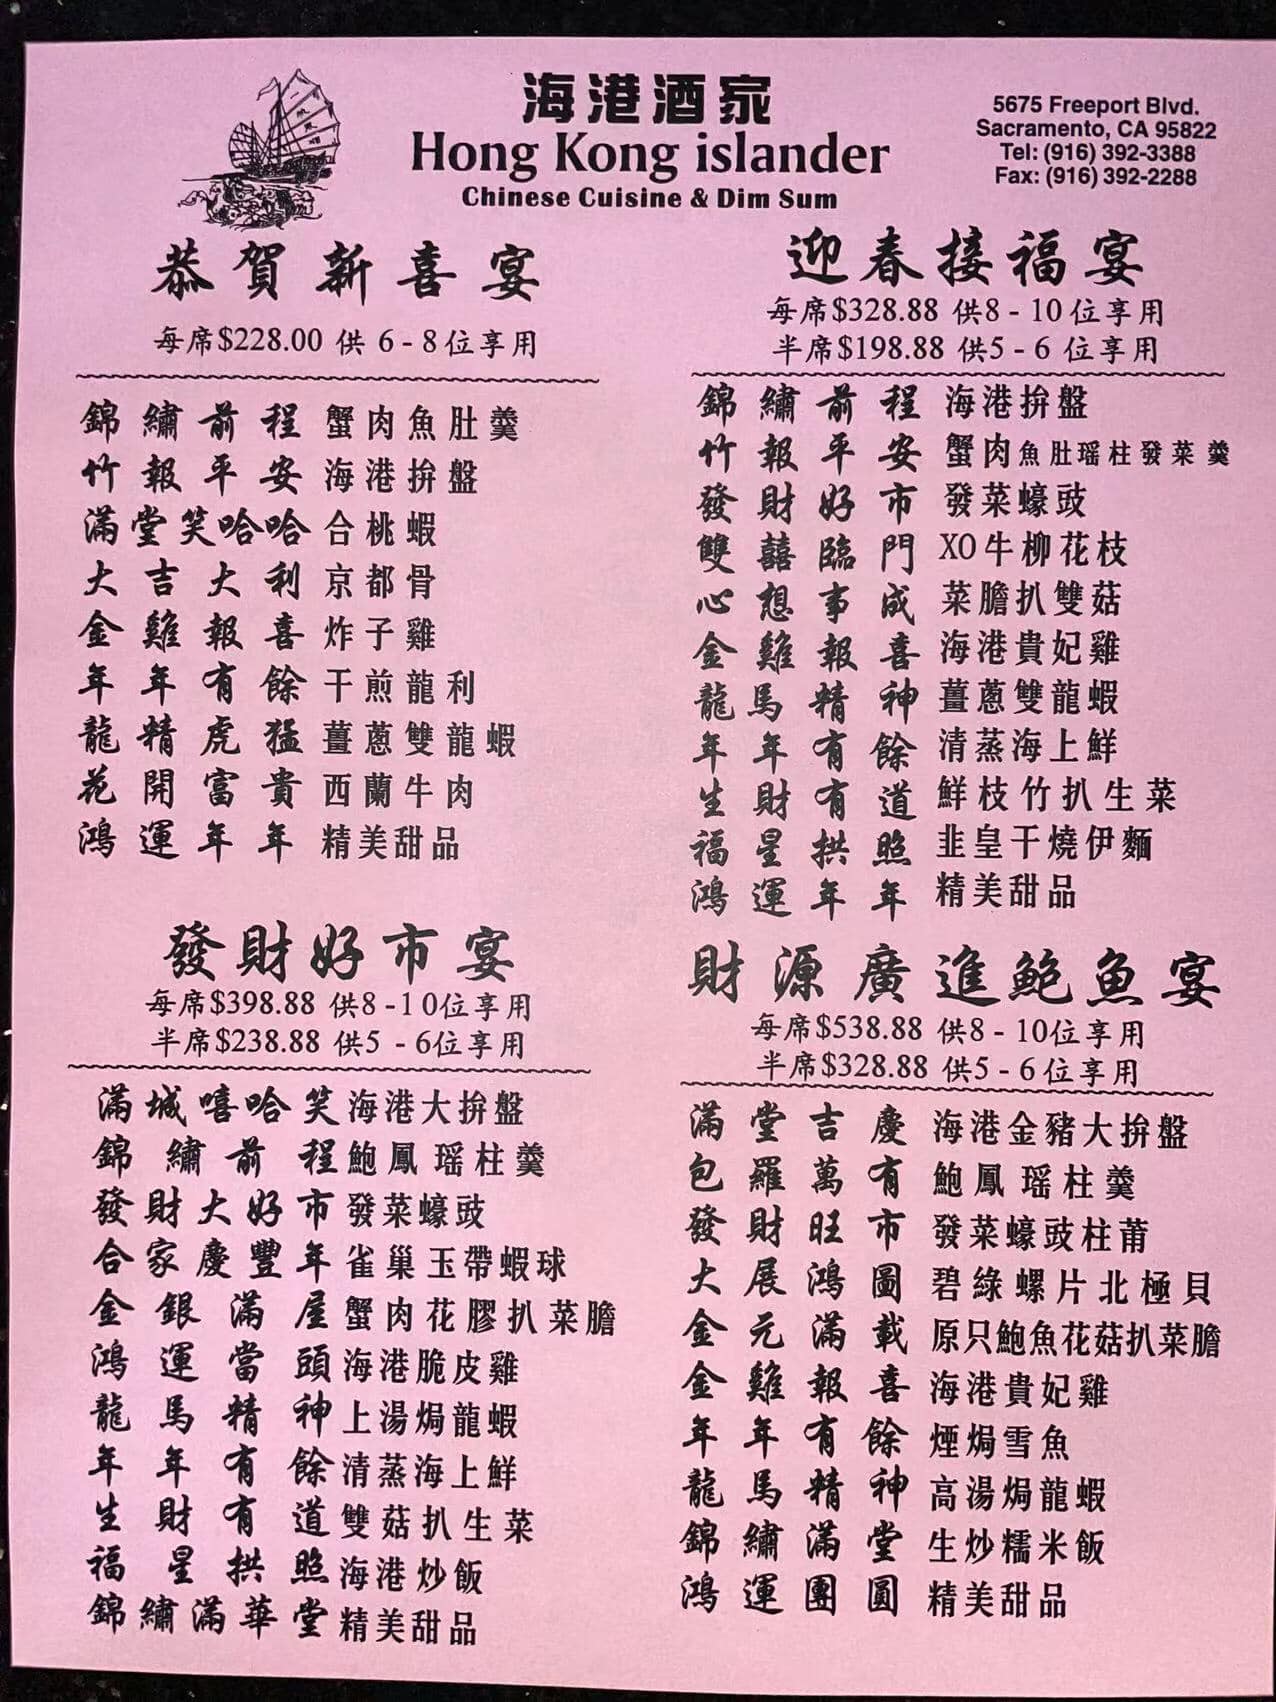 海港酒家
Hong Kong islander
Chinese Cuisine & Dim Sum
5675 Freeport Blvd.
Sacramento, CA 95822
Tel: (916) 392-3388
Fax: (916) 392-2288
恭賀新喜宴
每席$228.00 供 6 - 8位享用
錦繡前程 蟹肉魚肚羹
竹報平安 海港拚盤
滿堂笑哈哈 合桃蝦
大吉大利 京都骨
金雞報喜 炸子雞
年年有餘 干煎龍利
龍精虎猛 薑蔥雙龍蝦
花開富貴 西蘭牛肉
鴻運年年 精美甜品
迎春接福宴
每席$328.88 供8 - 10位享用
半席$198.88 供5 - 6 位享用
錦繡前程 海港拚盤
竹報平安 蟹肉魚肚瑶柱發菜羹
發財好市 發菜蠔豉
雙囍臨門 XO牛柳花枝
心想事成 菜膽扒雙菇
金雞報喜 海港貴妃雞
龍馬精神 薑蔥雙龍蝦
年年有餘 清蒸海上鮮
生財有道 鮮枝竹扒生菜
福星拱照 韭皇干燒伊麵
鴻運年年 精美甜品
發財好市宴
每席$398.88 供8 -10位享用
半席$238.88 供5 - 6位享用
滿城嘻哈笑 海港大拚盤
錦繡前程 鮑鳳瑶柱羹
發財大好市 發菜蠔豉
合家慶豐年 雀巢玉帶蝦球
金銀滿屋 蟹肉花膠扒菜膽
鴻運當頭 海港脆皮雞
龍馬精神 上湯焗龍蝦
年年有餘 清蒸海上鮮
生財有道 雙菇扒生菜
福星拱照 海港炒飯
錦繡滿華堂 精美甜品
財源廣進鮑魚宴
每席$538.88 供8 - 10位享用
半席$328.88 供5 - 6位享用
滿堂吉慶 海港金豬大拚盤
包羅萬有 鮑鳳瑶柱羹
發財旺市 發菜蠔豉柱莆
大展鴻圖 碧綠螺片北極貝
金元滿載 原只鮑魚花菇扒菜膽
金雞報喜 海港貴妃雞
年年有餘 煙焗雪魚
龍馬精神 高湯焗龍蝦
錦繡滿堂 生炒糯米飯
鴻運團圓 精美甜品